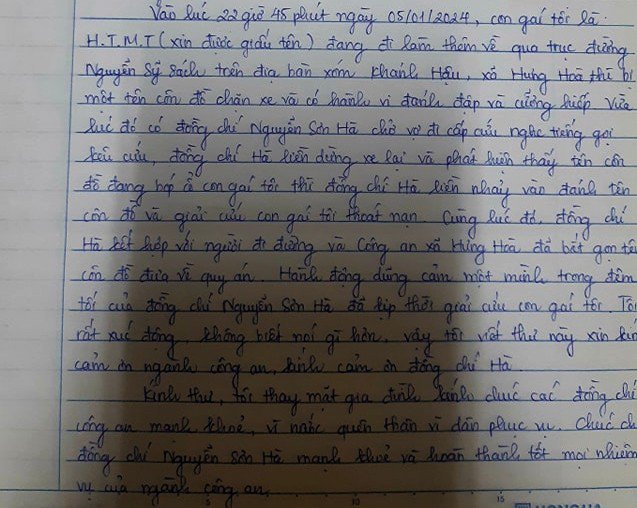 Vào lúc 22 giờ 45 phút ngày 05/01/2024, con gái tôi là
H.T.M.T (xin được giấu tên) đang đi làm thêm về qua trục đường
Nguyễn Sỹ Sách trên địa bàn xóm Khánh Hậu, xã Hưng Hoà thì bị
một tên côn đồ chặn xe và có hành vi đánh đập và cưỡng hiếp. Vừa
lúc đó có đồng chí Nguyễn Sơn Hà chở vợ đi cấp cứu nghe tiếng gọi
kêu cứu, đồng chí Hà liền dừng xe lại và phát hiện thấy tên côn
đồ đang bóp cổ con gái tôi thì đồng chí Hà liền nhảy vào đánh tên
côn đồ và giải cứu con gái tôi thoát nạn. Cùng lúc đó, đồng chí
Hà kết hợp với người đi đường và Công an xã Hưng Hoà đã bắt gọn tên
côn đồ đưa về quy án. Hành động dũng cảm một mình trong đêm
tối của đồng chí Nguyễn Sơn Hà đã kịp thời giải cứu con gái tôi. Tôi
rất xúc động, không biết nói gì hơn, vậy tôi viết thư này xin kín
cảm ơn ngành công an, kính cảm ơn đồng chí Hà.
Kính thư, tôi thay mặt gia đình kính chúc các đồng chí
công an mạnh khoẻ, vì nước quên thân vì dân phục vụ. Chúc ch
đồng chí Nguyễn Sơn Hà mạnh khoẻ và hoàn thành tốt mọi nhiệm
vụ của ngành công an.
5 10 15
HONGHA